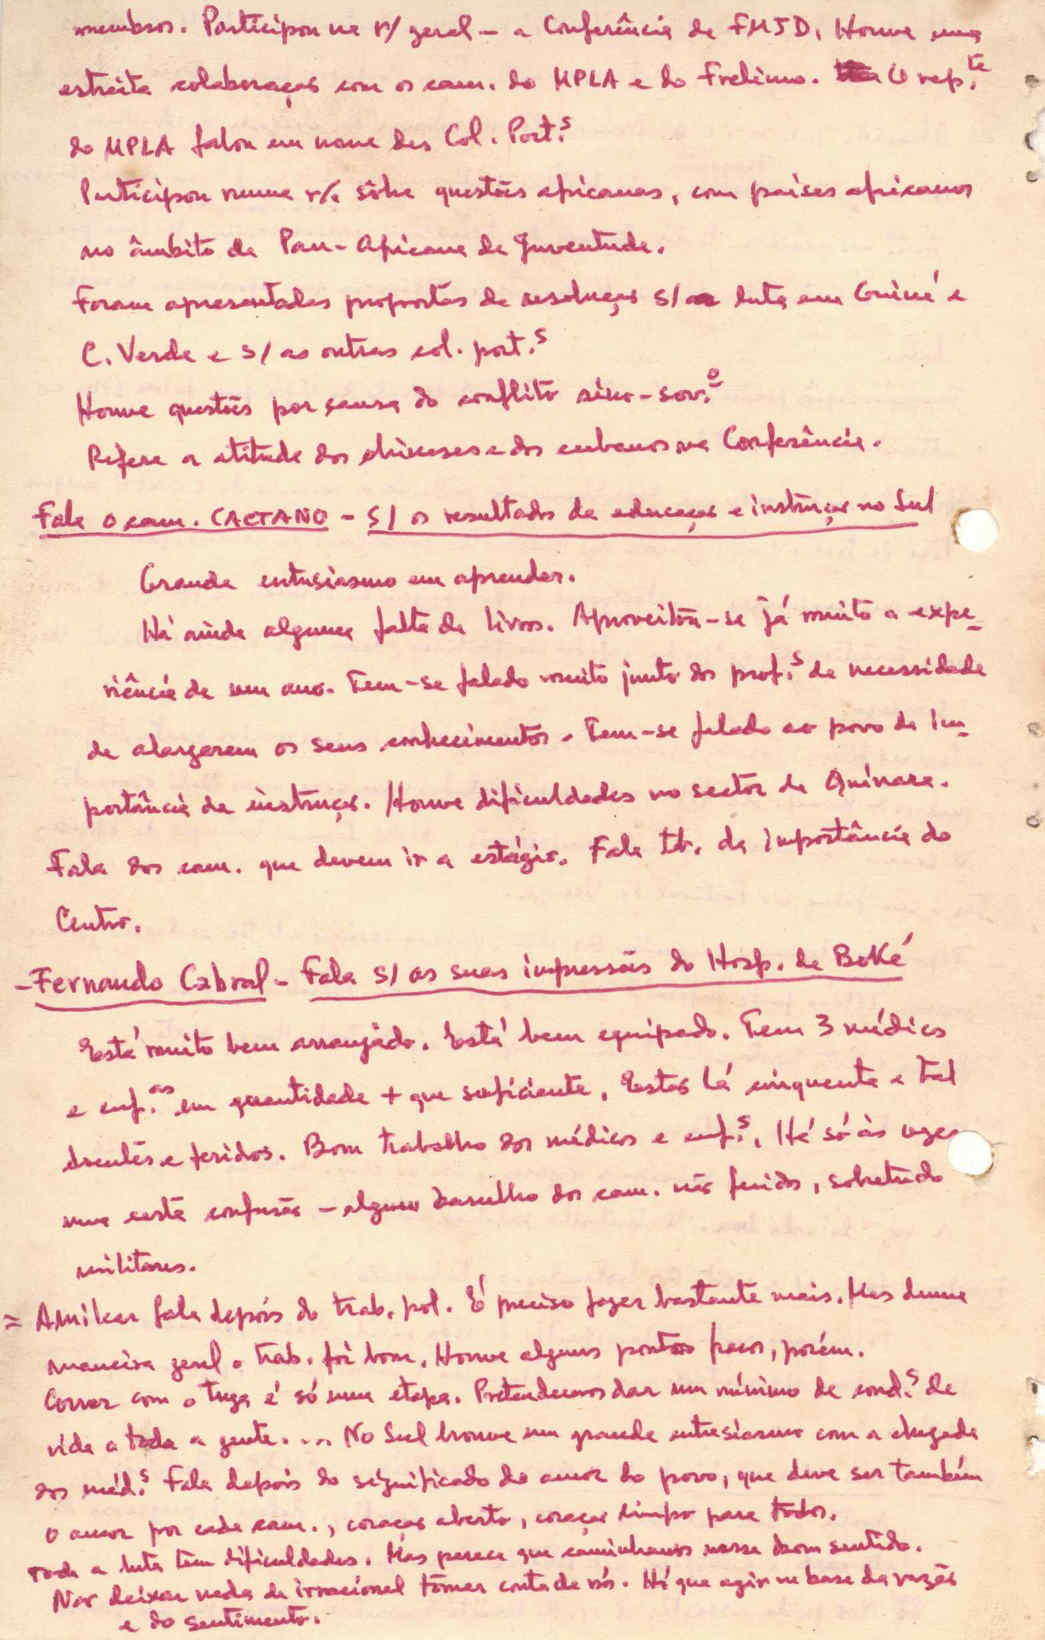 membros. Participou na r/ geral - a Conferência da FMJD. Houve uma
estreita colaboração com os cam. do MPLA e da Frelimo. O rep.te
do MPLA falou em nome das Col. Port.s
Participou numa r/ sôbre questões africanas, com países africanos
no âmbito da Pan-Africana da Juventude.
Foram apresentadas propostas de resolução s/ a luta em Guiné e
C. Verde e s/ as outras col. port.s
Houve questões por causa do conflito sino-sov.º
Refere a atitude dos chineses e dos cubanos na Conferência.
Fala o cam. CAETANO - S/ os resultados da educação e instrução no Sul
Grande entusiasmo em aprender.
Há ainda alguma falta de livros. Aproveitou-se já muito a expe-
riência de um ano. Tem-se falado muito junto dos prof.s da necessidade
de alargarem os seus conhecimentos. Tem-se falado ao povo da im-
portância da instrução. Houve dificuldades no sector de Quínara.
Fala dos cam. que devem ir a estágio. Fala tb. da importância do
Centro.
- Fernando Cabral - Fala s/ as suas impressões do Hosp. de Boké
Está muito bem arranjado. Está bem equipado. Tem 3 médicos
e enf.as em quantidade + que suficiente. Estão lá cinquenta e tal
doentes e feridos. Bom trabalho dos médicos e enf.s. Há só às vezes
uma certa confusão - algum barulho dos cam. não feridos, sobretudo
militares.
= Amilcar fala depois do trab. pol. É preciso fazer bastante mais. Mas duma
maneira geral o trab. foi bom. Houve alguns pontos fracos, porém.
Correr com o tuga é só uma etapa. Pretendemos dar um mínimo de cond.s de
vida a toda a gente. ... No Sul houve um grande entusiasmo com a chegada
dos méd.s Fala depois do significado do amor do povo, que deve ser também
o amor por cada cam., coração aberto, coração limpo para todos.
Toda a luta tem dificuldades. Mas parece que caminhamos nesse bom sentido.
Não deixar nada de irracional tomar conta de nós. Há que agir na base da razão
e do sentimento.